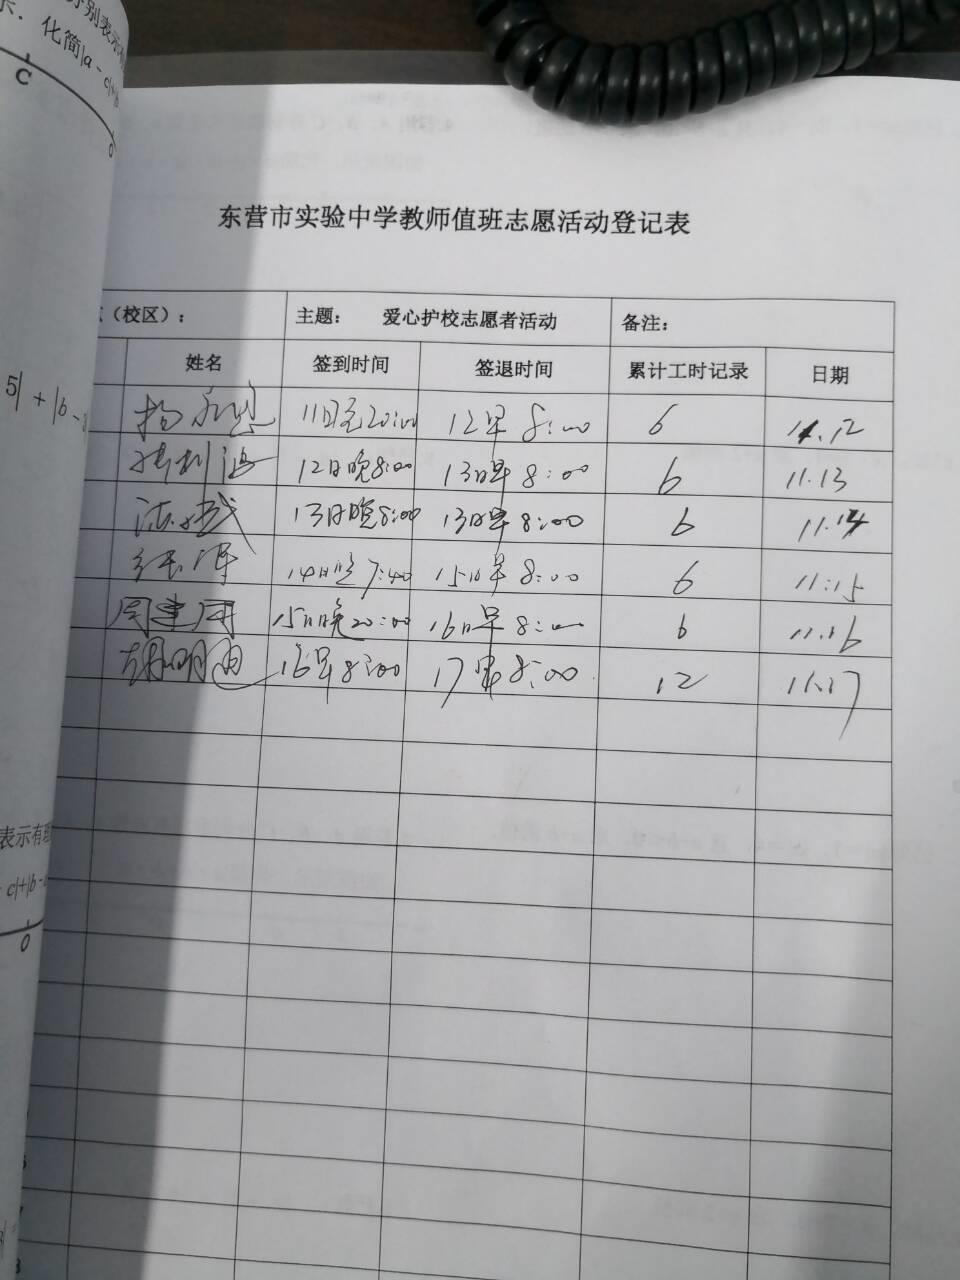 分别表示
示．化简|a－c|+|b
C
0
东营市实验中学教师值班志愿活动登记表
（校区）： 主题： 爱心护校志愿者活动 备注：
姓名 签到时间 签退时间 累计工时记录 日期
11日晚20:00 12早 8:00 6 11.12
12日晚8:00 13日早 8:00 6 11.13
13日晚8:00 13日早8:00 6 11.14
14日晚7:40 15日早 8:00 6 11.15
周建国 15日晚20:00 16日早 8:00 6 11.16
胡明迪 16早8:00 17早8:00 12 11.17
5|+|b－
表示有理
c|+|b－
0